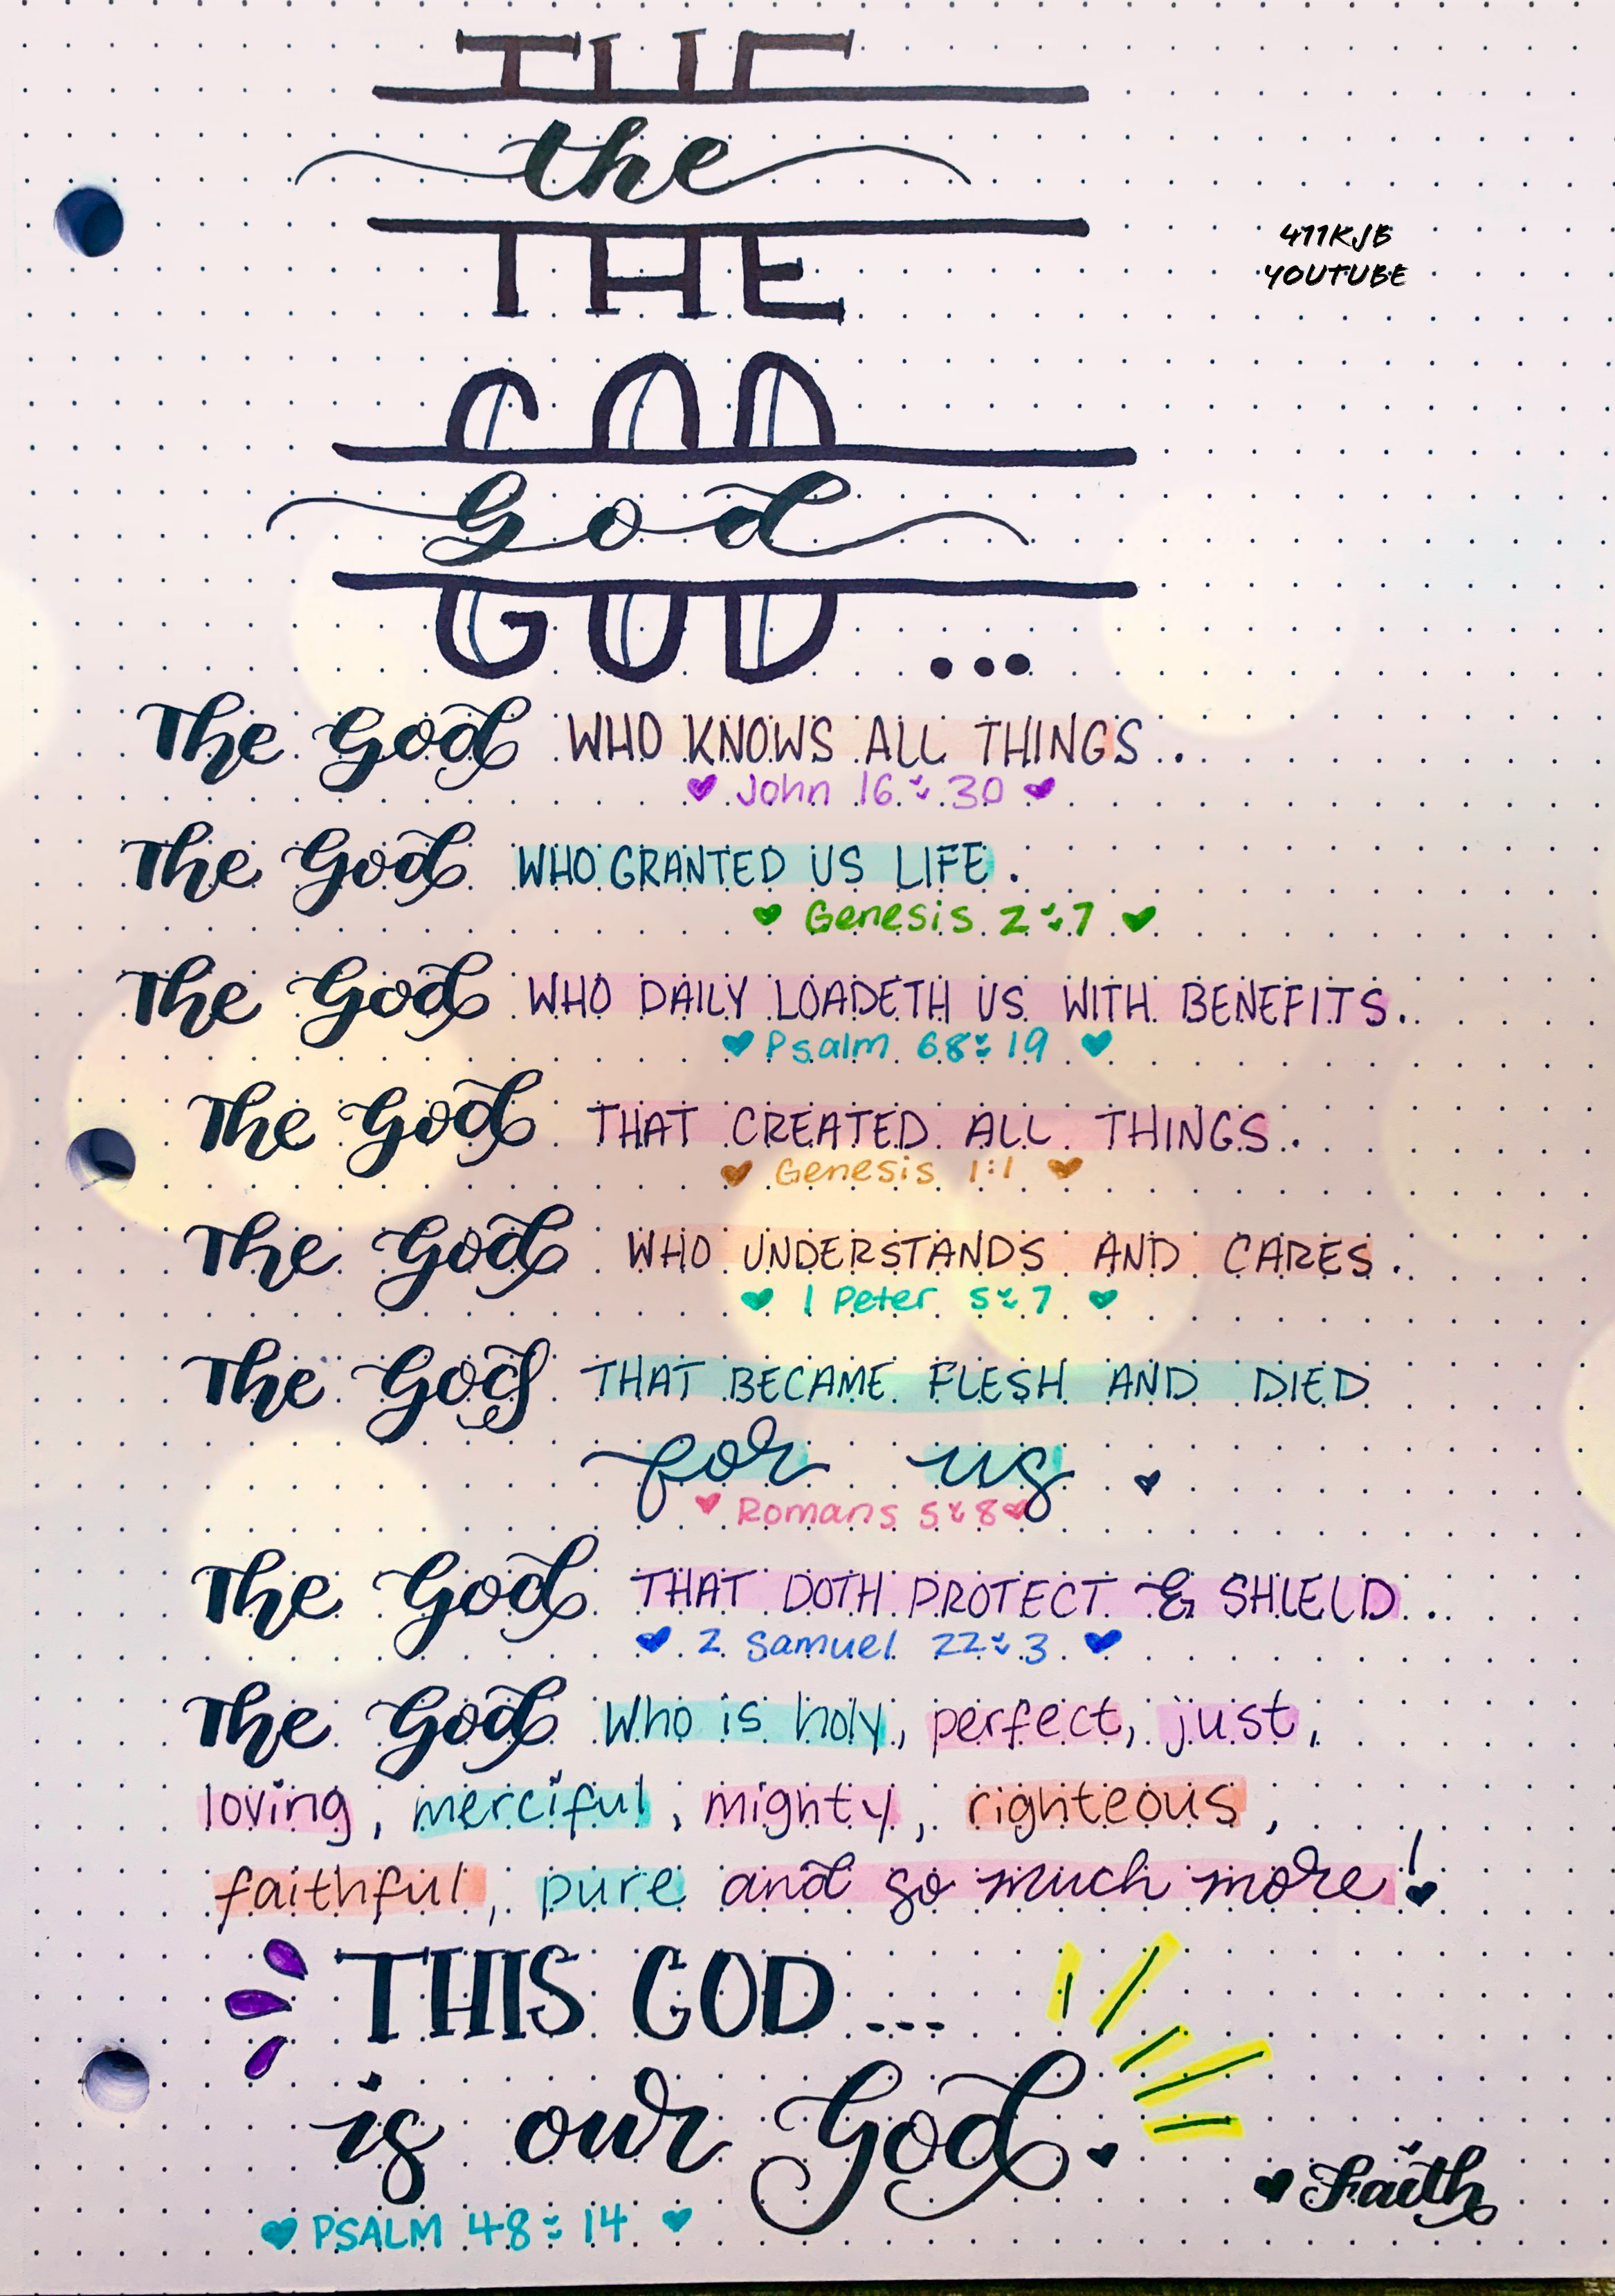 THE
the
THE
411KJB
YOUTUBE
GOD
God
GOD ...
The God WHO KNOWS ALL THINGS.
John 16:30
The God WHO GRANTED US LIFE.
Genesis 2:7
The God WHO DAILY LOADETH US WITH BENEFITS.
Psalm 68:19
The God THAT CREATED ALL THINGS.
Genesis 1:1
The God WHO UNDERSTANDS AND CARES.
1 Peter 5:7
The God THAT BECAME FLESH AND DIED
for us
Romans 5:8
The God THAT DOTH PROTECT & SHIELD.
2 Samuel 22:3
The God Who is holy, perfect, just,
loving, merciful, mighty, righteous,
faithful, pure and so much more!
THIS GOD...
is our God.
Faith
PSALM 48:14